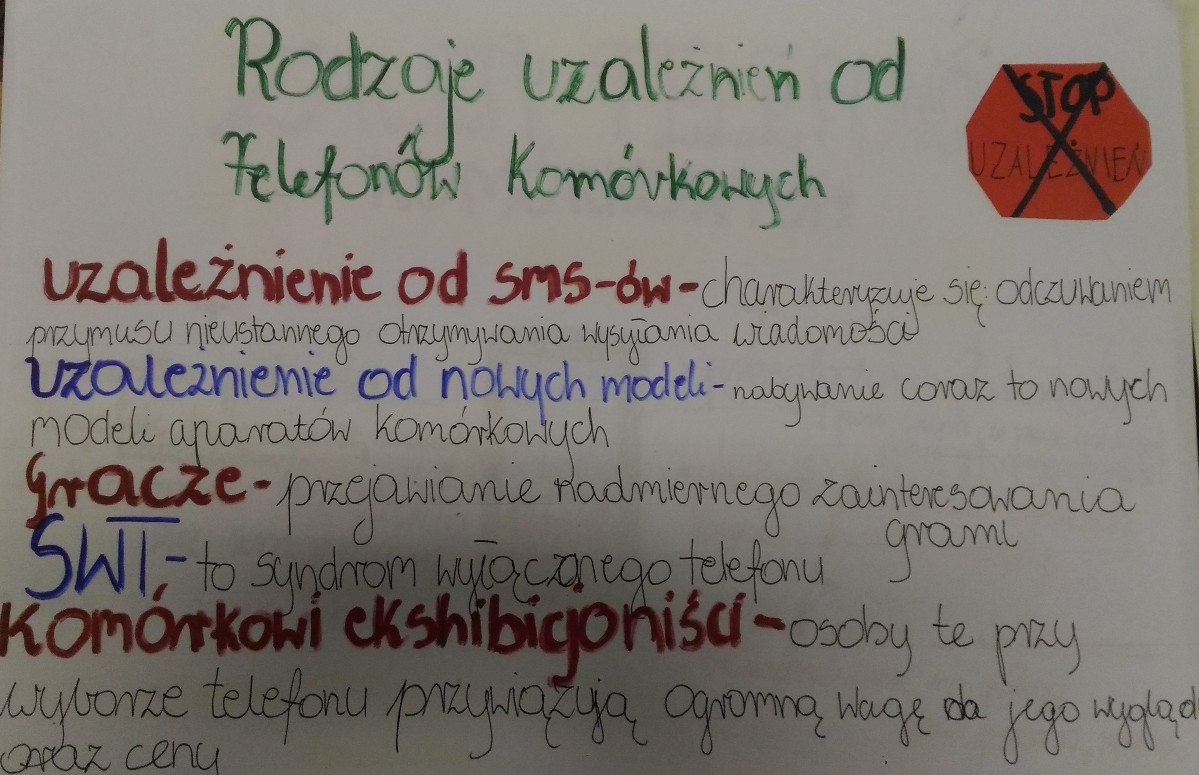 Rodzaje uzależnień od
telefonów komórkowych
STOP
UZALEŻNIEŃ
uzależnienie od sms-ów - charakteryzuje się odczuwaniem
przymusu nieustannego otrzymywania wysyłania wiadomości
uzależnienie od nowych modeli - nabywanie coraz to nowych
modeli aparatów komórkowych
Gracze - przejawianie nadmiernego zainteresowania
grami
SWT, - to syndrom wyłączonego telefonu
Komórkowi ekshibicjoniści - osoby te przy
wyborze telefonu przywiązują ogromną wagę do jego wygląd
oraz ceny